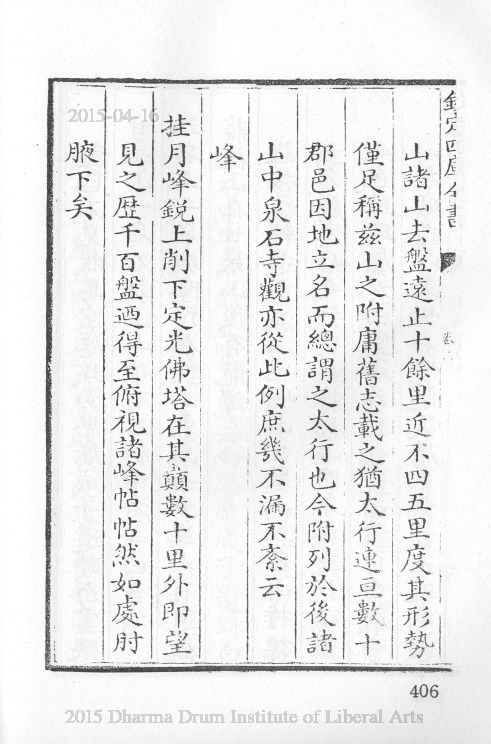 欽定四庫全書
卷
山諸山去盤遠止十餘里近不四五里度其形勢
僅足稱兹山之附庸舊志載之猶太行連亘數十
郡邑因地立名而總謂之太行也今附列於後諸
山中泉石寺觀亦從此例庶幾不漏不紊云
峰
挂月峰鋭上削下定光佛塔在其巔數十里外即望
見之歴千百盤迺得至俯視諸峰帖帖然如處肘
腋下矣
406
2015-04-16
2015 Dharma Drum Institute of Liberal Arts